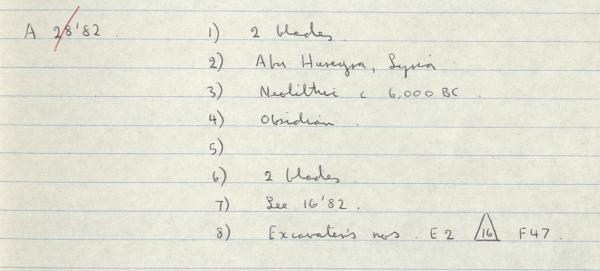 A 28'82. 1) 2 blades.
2) Abu Hureyra, Syria
3) Neolithic c 6,000 BC.
4) Obsidian.
5)
6) 2 blades.
7) See 16'82.
8) Excavater's nos. E2 16 F47.